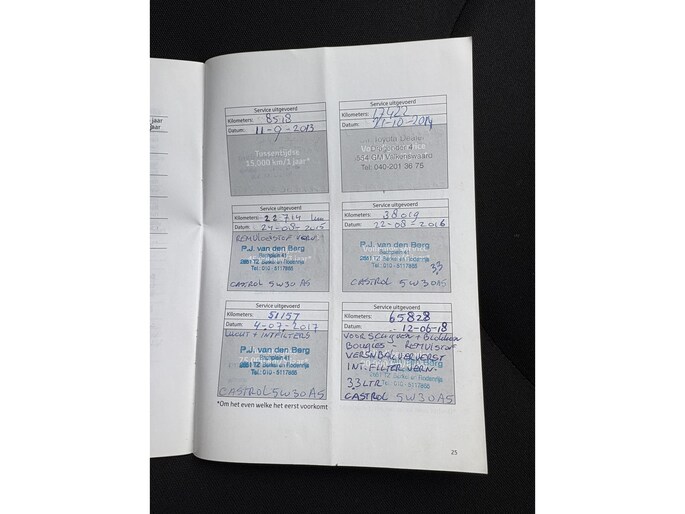 jaar
jaar
Service uitgevoerd
Kilometers: 8518
Datum: 11-9-2013
Tussentijdse
15.000 km/1 jaar*
Service uitgevoerd
Kilometers: 17422
Datum: 21-10-2014
Toyota Dealer
5554 GM Valkenswaard
Tel: 040-201 36 75
Service uitgevoerd
Kilometers: 22.714 km
Datum: 24-08-2015
REMVLOEISTOF
P.J. van den Berg
Tel.: 010 - 5117855
CASTROL 5W30 A5
Service uitgevoerd
Kilometers: 38019
Datum: 22-08-2016
Tel.: 010 - 5117855
3,3
CASTROL 5W30A5
Service uitgevoerd
Kilometers: 51157
Datum: 4-07-2017
LUCHT + INTFILTERS
P.J. van den Berg
Tel.: 010 - 5117855
CASTROL 5W30A5
Service uitgevoerd
Kilometers: 65828
Datum: 12-06-18
VOORSCHIJVEN + Blokken
Bougies - REMVLSTOF
VERSNBAK VERVERST
INT. FILTER VERN.
3,3 LTR
CASTROL 5W30 A5
*Om het even welke het eerst voorkomt
25